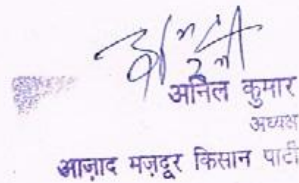 अनिल कुमार
अध्यक्ष
आज़ाद मज़दूर किसान पार्टी